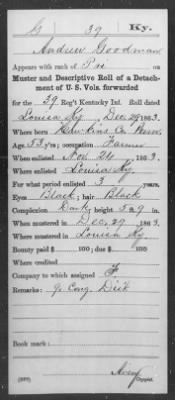 G 39 Ky.
Andrew Goodman
Appears with rank of Pri on
Muster and Descriptive Roll of a Detach-
ment of U. S. Vols. forwarded
for the 39 Reg't Kentucky Inf. Roll dated
Louisa Ky, Dec 29 1863.
Where born Hawkins Co Tenn
Age 33 y'rs; occupation Farmer
When enlisted Nov 24, 1863
Where enlisted Louisa Ky.
For what period enlisted 3 years.
Eyes Black; hair Black
Complexion Dark; height 5 ft. 9 in.
When mustered in Dec. 29, 1863
Where mustered in Louisa Ky
Bounty paid $ 100; due $ 100
Where credited
Company to which assigned F
Remarks: 9. Cong. Dist
Book mark:
Copyist.